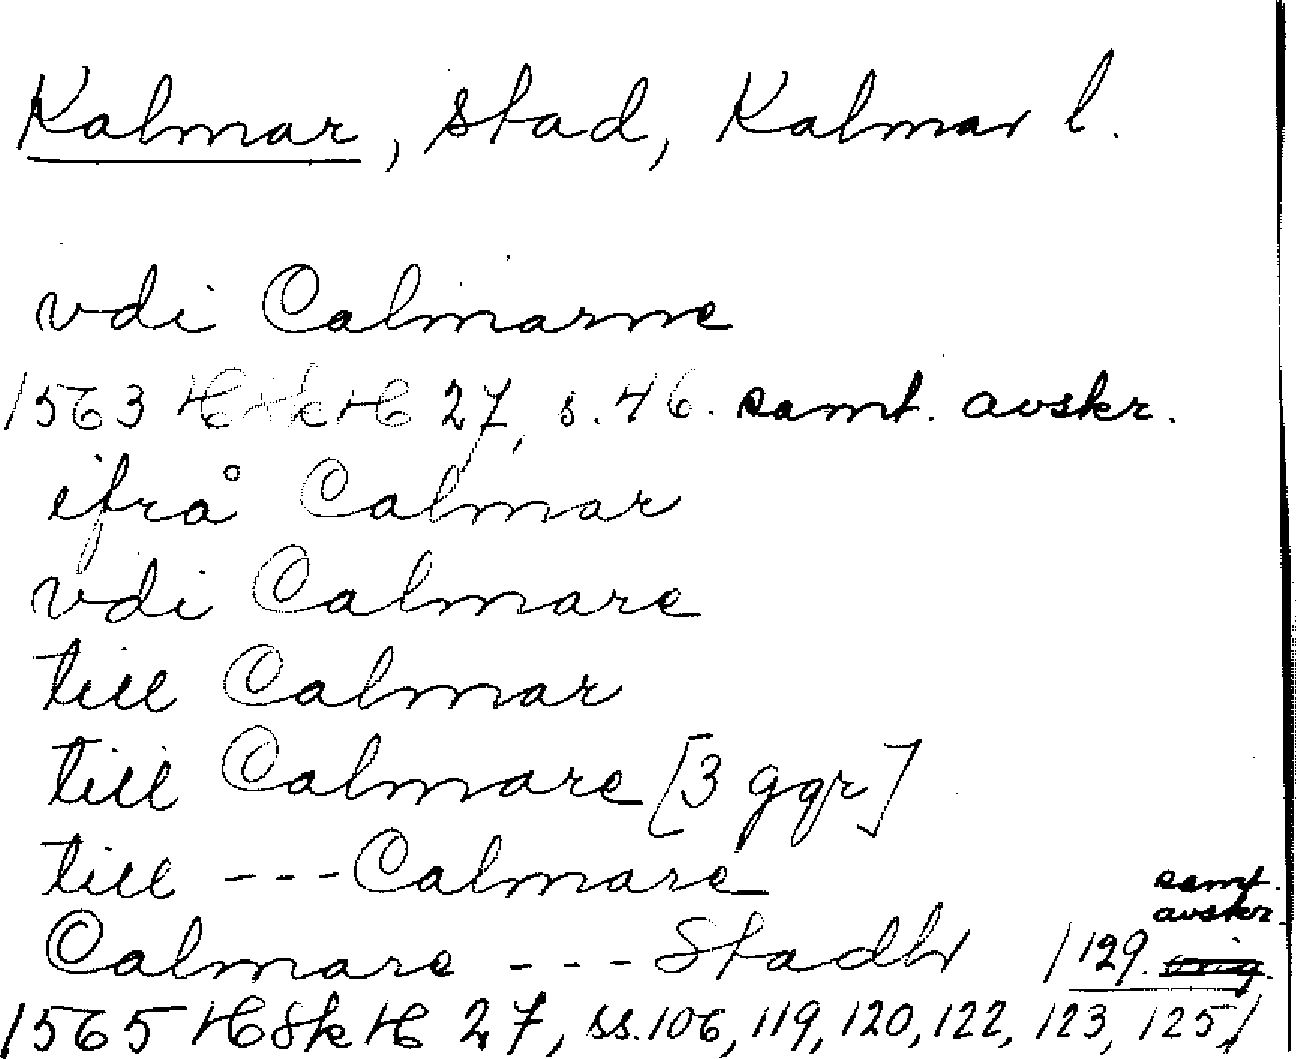 Kalmar, stad, Kalmar l.
vdi Calmarne
1563 HSkH 27, s. 46. samt. avskr.
ifrå Calmar
vdi Calmare
till Calmar
till Calmare [3 ggr]
till --- Calmare
samt.
avskr.
Calmare --- Stadh / 129. orig.
1565 HSkH 27, ss. 106, 119, 120, 122, 123, 125,/